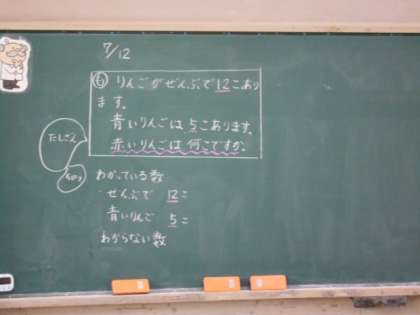 7/12
も りんごがぜんぶで12こあり
ます。
青いりんごは5こあります。
赤いりんごは何こですか。
たしざん
わかっている数
ぜんぶで 12こ
青いりんご 5こ
わからない数